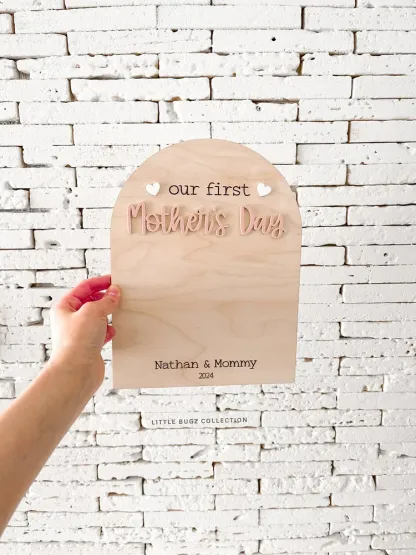 our first
Mother's Day
Nathan & Mommy
2024
LITTLE BUGZ COLLECTION